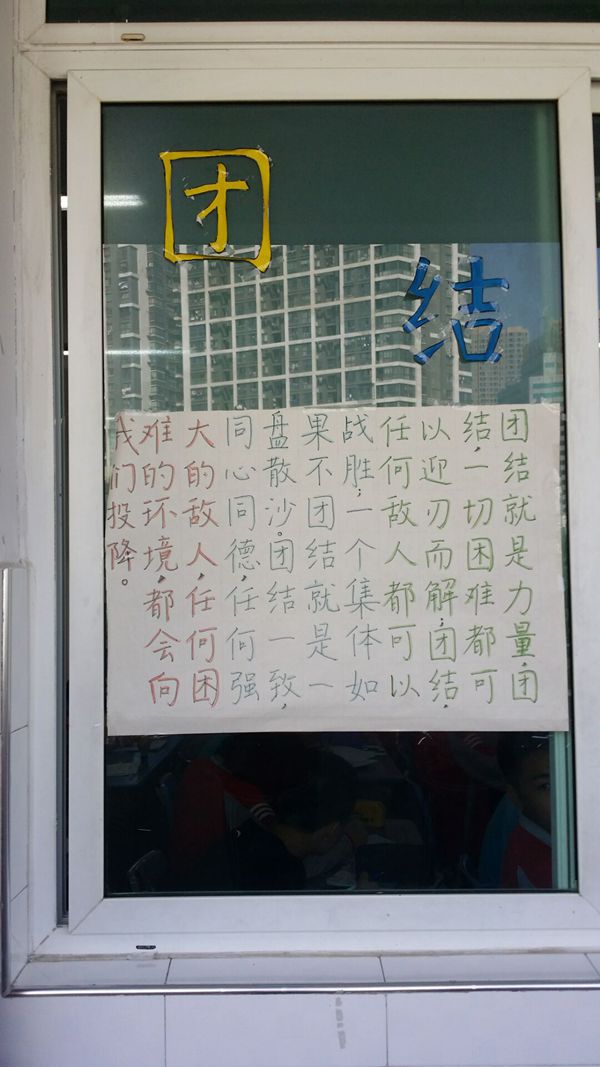 团结
团结就是力量，团
结，一切困难都可
以迎刃而解，团结，
任何敌人都可以
战胜；一个集体如
果不团结就是一
盘散沙。团结一致，
同心同德，任何强
大的敌人，任何困
难的环境，都会向
我们投降。